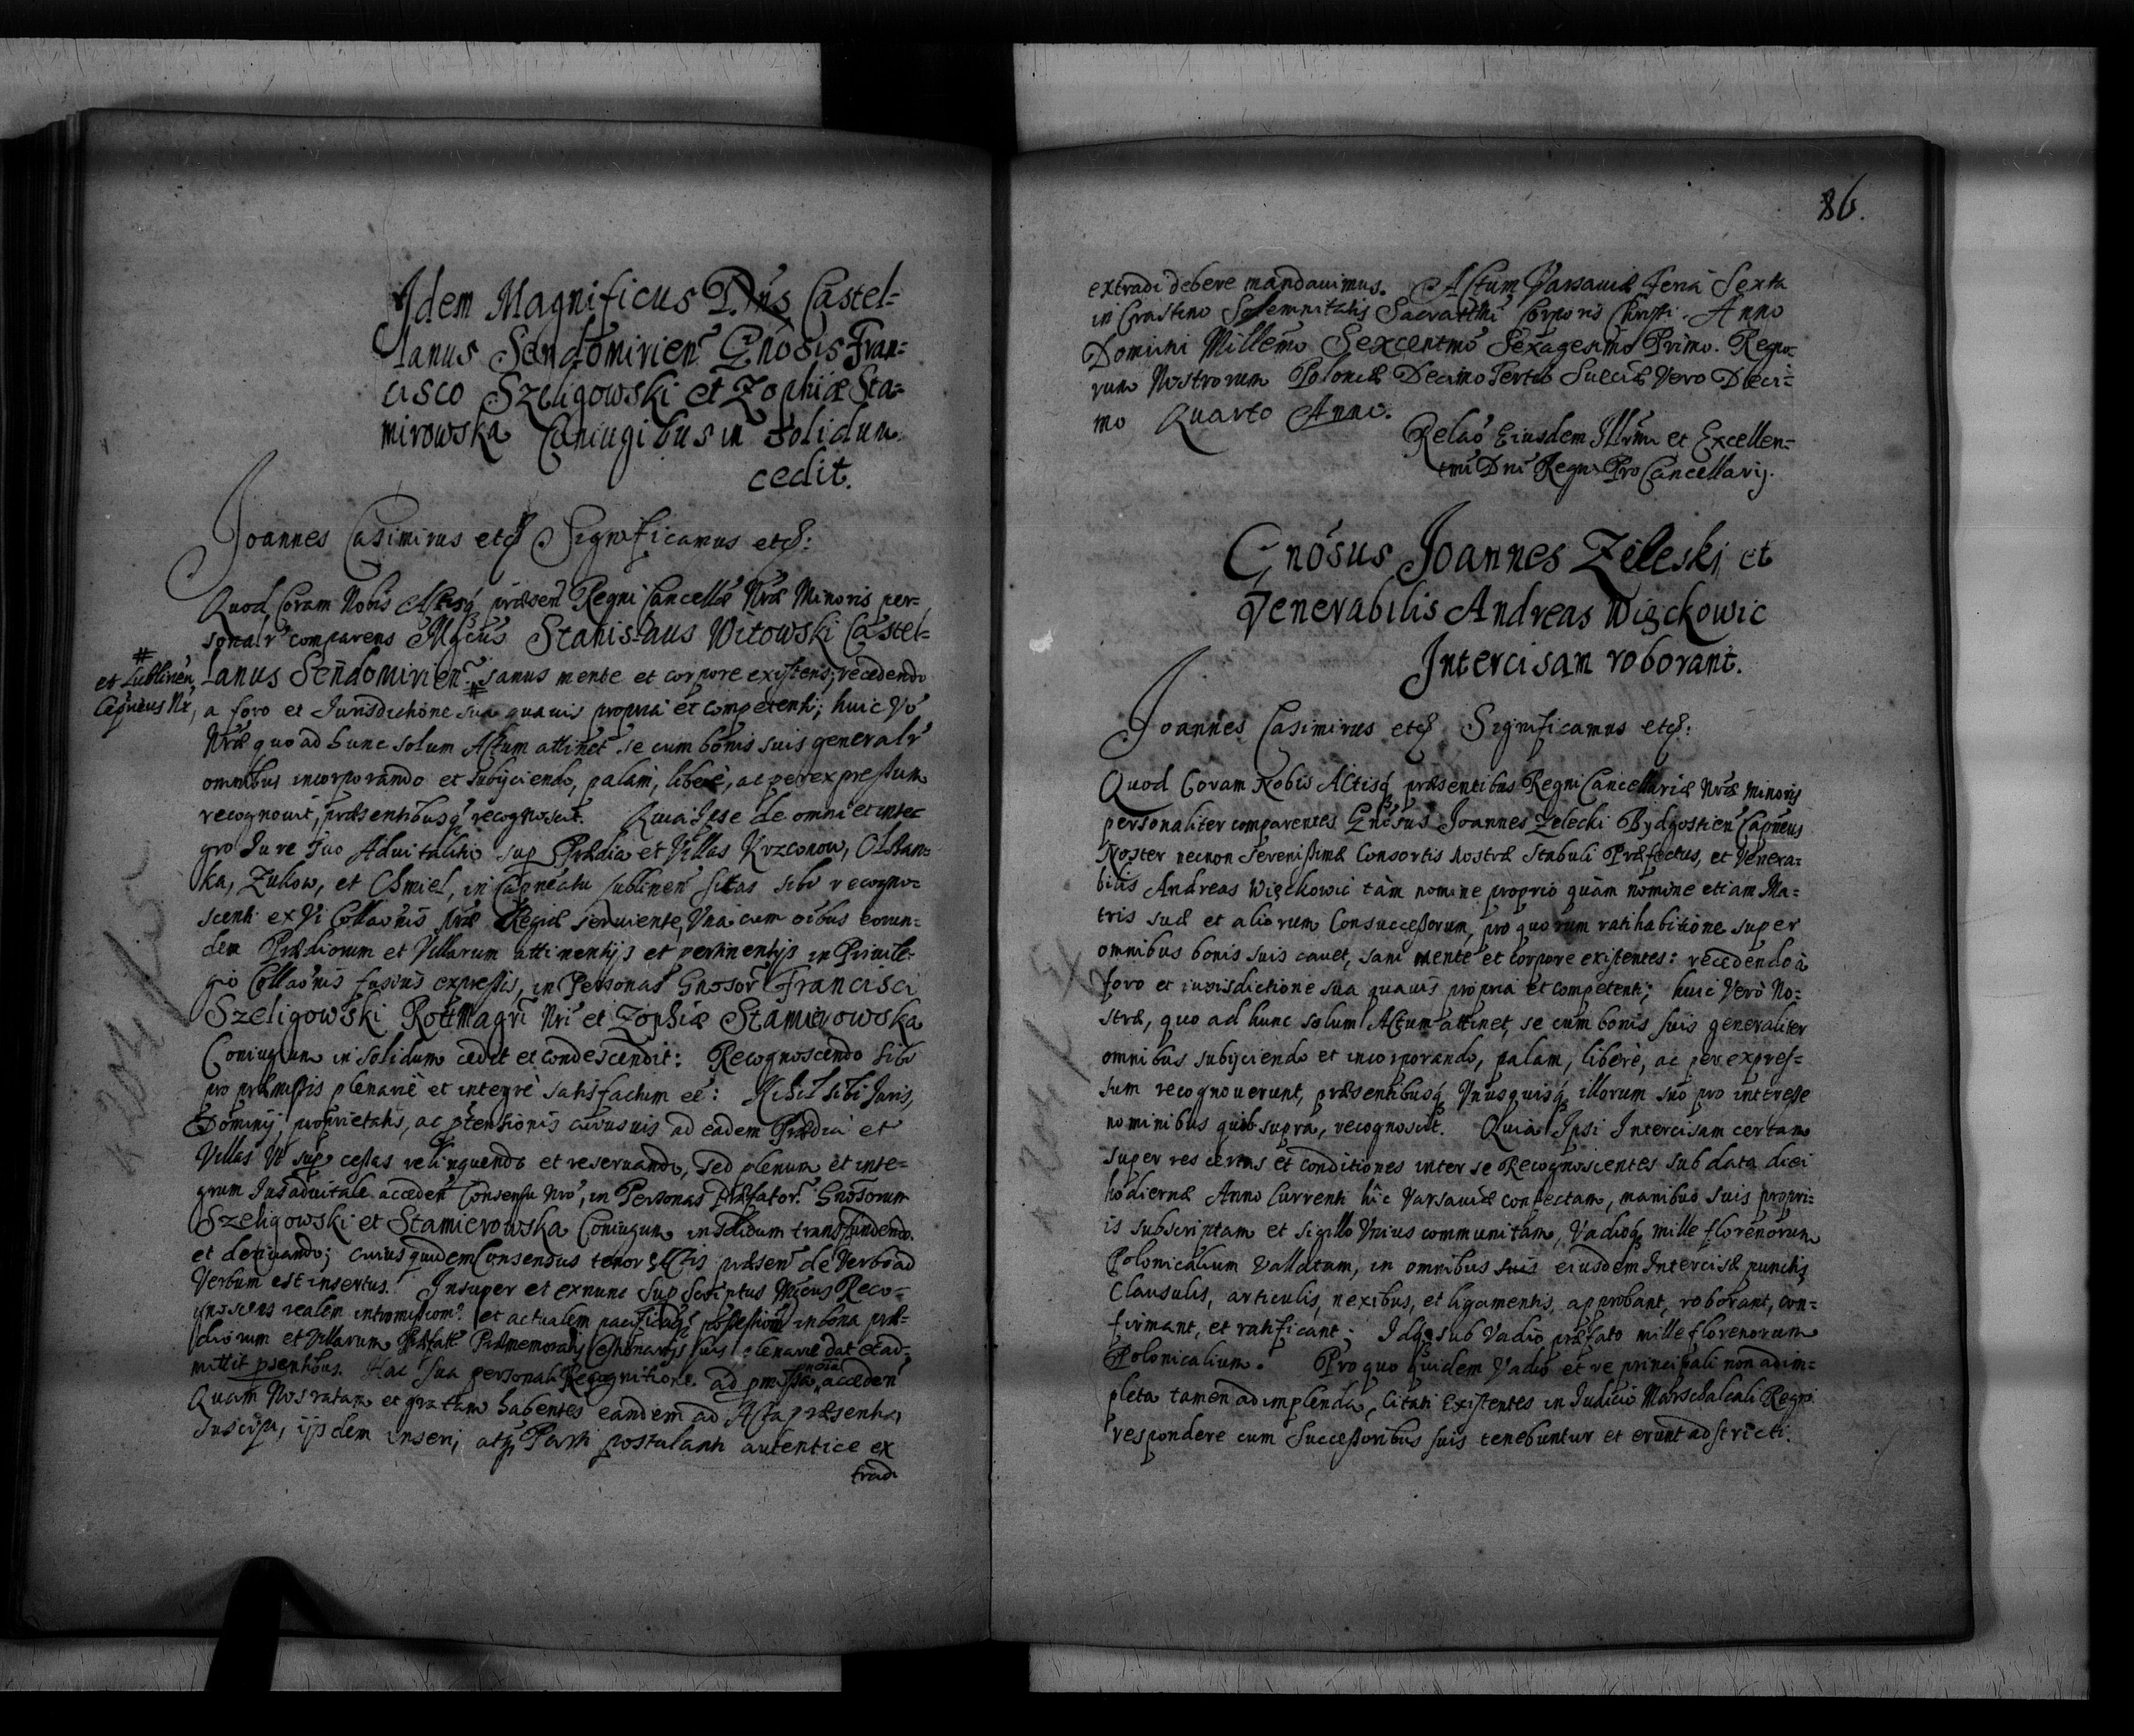 Idem Magnificus Dns Castel=
lanus Sendomirien Gnosis Fran=
cisco Szeligowski et Zophiæ Sta=
mirowska Coniugibus in solidum
cedit.
Joannes Casimirus etc Significamus etc:
Quod Coram Nobis Actisq præsen Regni Cancellæ Nræ Minoris per=
sonalr comparens Mgcus Stanislaus Witowski Castel=
# et Lublinen Capneus Nr,
lanus Sendomirien # sanus mente et corpore existens, recedendo
a foro et Jurisdictione sua quavis propria et competenti; huic Vo
Nræ quo ad hunc solum Actum attinet se cum bonis suis generalr
omnibus incorporando et subijciendo, palam, libere, ac per expressum
recognovit, præsentibusq recognoscit. Quia Ipse de omni et inte
gro Jure suo Advitalitio sup Prædia et Villas Krzconow, Olszan=
ka, Zukow, et Chmiel, in Capneatu Lublinen sitas sibi recogno=
scenti ex Vi Collaonis Nræ Regiæ serviente, Vna cum oibus eorun=
dem Prædiorum et Villarum attinentijs et pertinentijs in Privile=
gio Collaonis fusius expressis, in Personas Gnosor Francisci
Szeligowski Rottmagri Nri et Zophiæ Stamierowska
Coniugum in solidum cedit et condescendit: Recognoscendo sibi
pro præmissis plenarie et integre satisfactum eē: Nihil sibi Juris,
Dominij, proprietatis, ac ptensionis cuiusvis ad eadem Prædia et
Villas Vt sup cessas relinquendo et reservando, sed plenum et inte=
grum Jus advitale acceden Consensu Nro, in Personas Præfator Gnosorum
Szeligowski et Stamierowska Coniugum in solidum transfundendo
et derivando; cuius quidem Consensus tenor Actis præsen de Verbo ad
Verbum est insertus. Insuper et exnunc Supscriptus Mgcus Reco=
gnoscens realem intromissionem et actualem pacificāq possessionē in bona præ=
diorum et Villarum Præfat Præmemoratis Cessionarijs suis plenarie dat et ad=
mittit psentibus. Hac sua personali Recognitione ad pmissa nota acceden
Quam Nos ratam et gratam habentes eandem ad Acta præsentia
suscipi, ijsdem inseri, atq Parti postulanti autentice ex
tradi
86.
extradi debere mandavimus. Actum Varsaviæ Feria Sexta
in Crastino Solemnitatis Sacrattmi Corporis Christi. Anno
Domini Millemo Sexcentmo Sexagesimo Primo. Regno=
rum Nostrorum Poloniæ Decimo Tertio Sueciæ Vero Deci=
mo Quarto Anno.
Relao Eiusdem Illrmi et Excellen=
tmi Dni Regni ProCancellarij.
Gnosus Joannes Zeleski et
Venerabilis Andreas Więckowic
Intercisam roborant.
Joannes Casimirus etc Significamus etc:
Quod Coram Nobis Actisq præsentibus Regni Cancellariæ Nræ Minoris
personaliter comparentes Gnosus Joannes Zelecki Bydgostien Capneus
Noster necnon Serenissimæ Consortis Nostræ Stabuli Præfectus, et Venera=
bilis Andreas Więckowic tàm nomine proprio quàm nomine etiam Ma=
tris suæ et aliorum Consuccessorum, pro quorum ratihabitione super
omnibus bonis suis cavet, sani mente et corpore existentes: recedendo à
foro et iurisdictione sua quavis propria et competenti; huic Verò No=
stræ, quo ad hunc solum Actum attinet, se cum bonis suis generaliter
omnibus subijciendo et incorporando, palam, liberè, ac per expres=
sum recognoverunt, præsentibusq Vnusquisq illorum suo pro interesse
nominibus quib supra, recognoscit. Quia Ipsi Intercisam certam
super res certas et conditiones inter se Recognoscentes sub data diei
hodiernæ Anno Currenti hîc Varsaviæ confectam, manibus suis propri=
is subscriptam et sigillo Vnius communitam, Vadioq mille florenorum
Polonicalium vallatam, in omnibus suis eiusdem Intercisæ punctis
Clausulis, articulis, nexibus, et ligamentis, approbant, roborant, con=
firmant, et ratificant; Idq sub Vadio præfato mille florenorum
Polonicalium. Pro quo quidem Vadio et re principali non adim=
pleta tamen adimplenda, Citati Existentes in Judicio Marschalcali Regni
respondere cum Successoribus suis tenebuntur et erunt adstricti.